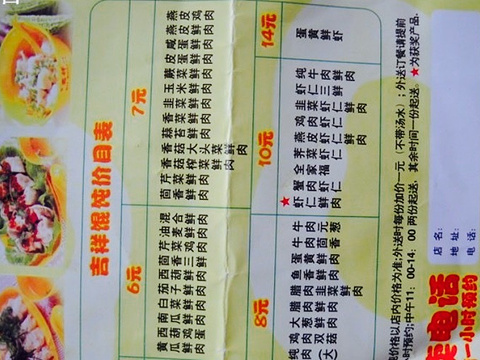 吉祥馄饨价目表
6元
黄瓜鲜肉
西葫鸡蛋
南瓜鲜肉
白菜鲜肉
茄子鲜肉
西葫鲜肉
茴香三鲜
芹菜鸡肉
油麦鲜肉
7元
茴香鲜肉
芹菜鲜肉
香菇榨菜鲜肉
香菇大头菜鲜肉
蒜苔鲜肉
香菜鲜肉
韭菜鲜肉
玉米鲜肉
蕨菜鲜肉
皮蛋鲜肉
咸蛋鲜肉
燕皮鲜肉
燕皮鸡肉
8元
纯鸡肉
鸡肉双菇
大葱鲜肉
腊肉鲜肉
腊肉韭菜
鱼香鲜肉
蛋黄鲜肉
牛肉茴香
牛肉元葱
10元
★虾仁鲜肉
蟹肉虾仁
全家福
荠菜虾仁
燕皮虾仁鲜肉
鸡肉虾仁
韭菜虾仁鲜肉
虾仁三鲜
纯牛肉
14元
蛋黄鲜虾
价格以店内价格为准;外送时每份加价一元(不带汤水);外送订餐请提前
时预约;中午11:00-14:00两份起送,其余时间一份起送。★为获奖产品.
店名:
地址:
电话:
电话
一小时预约